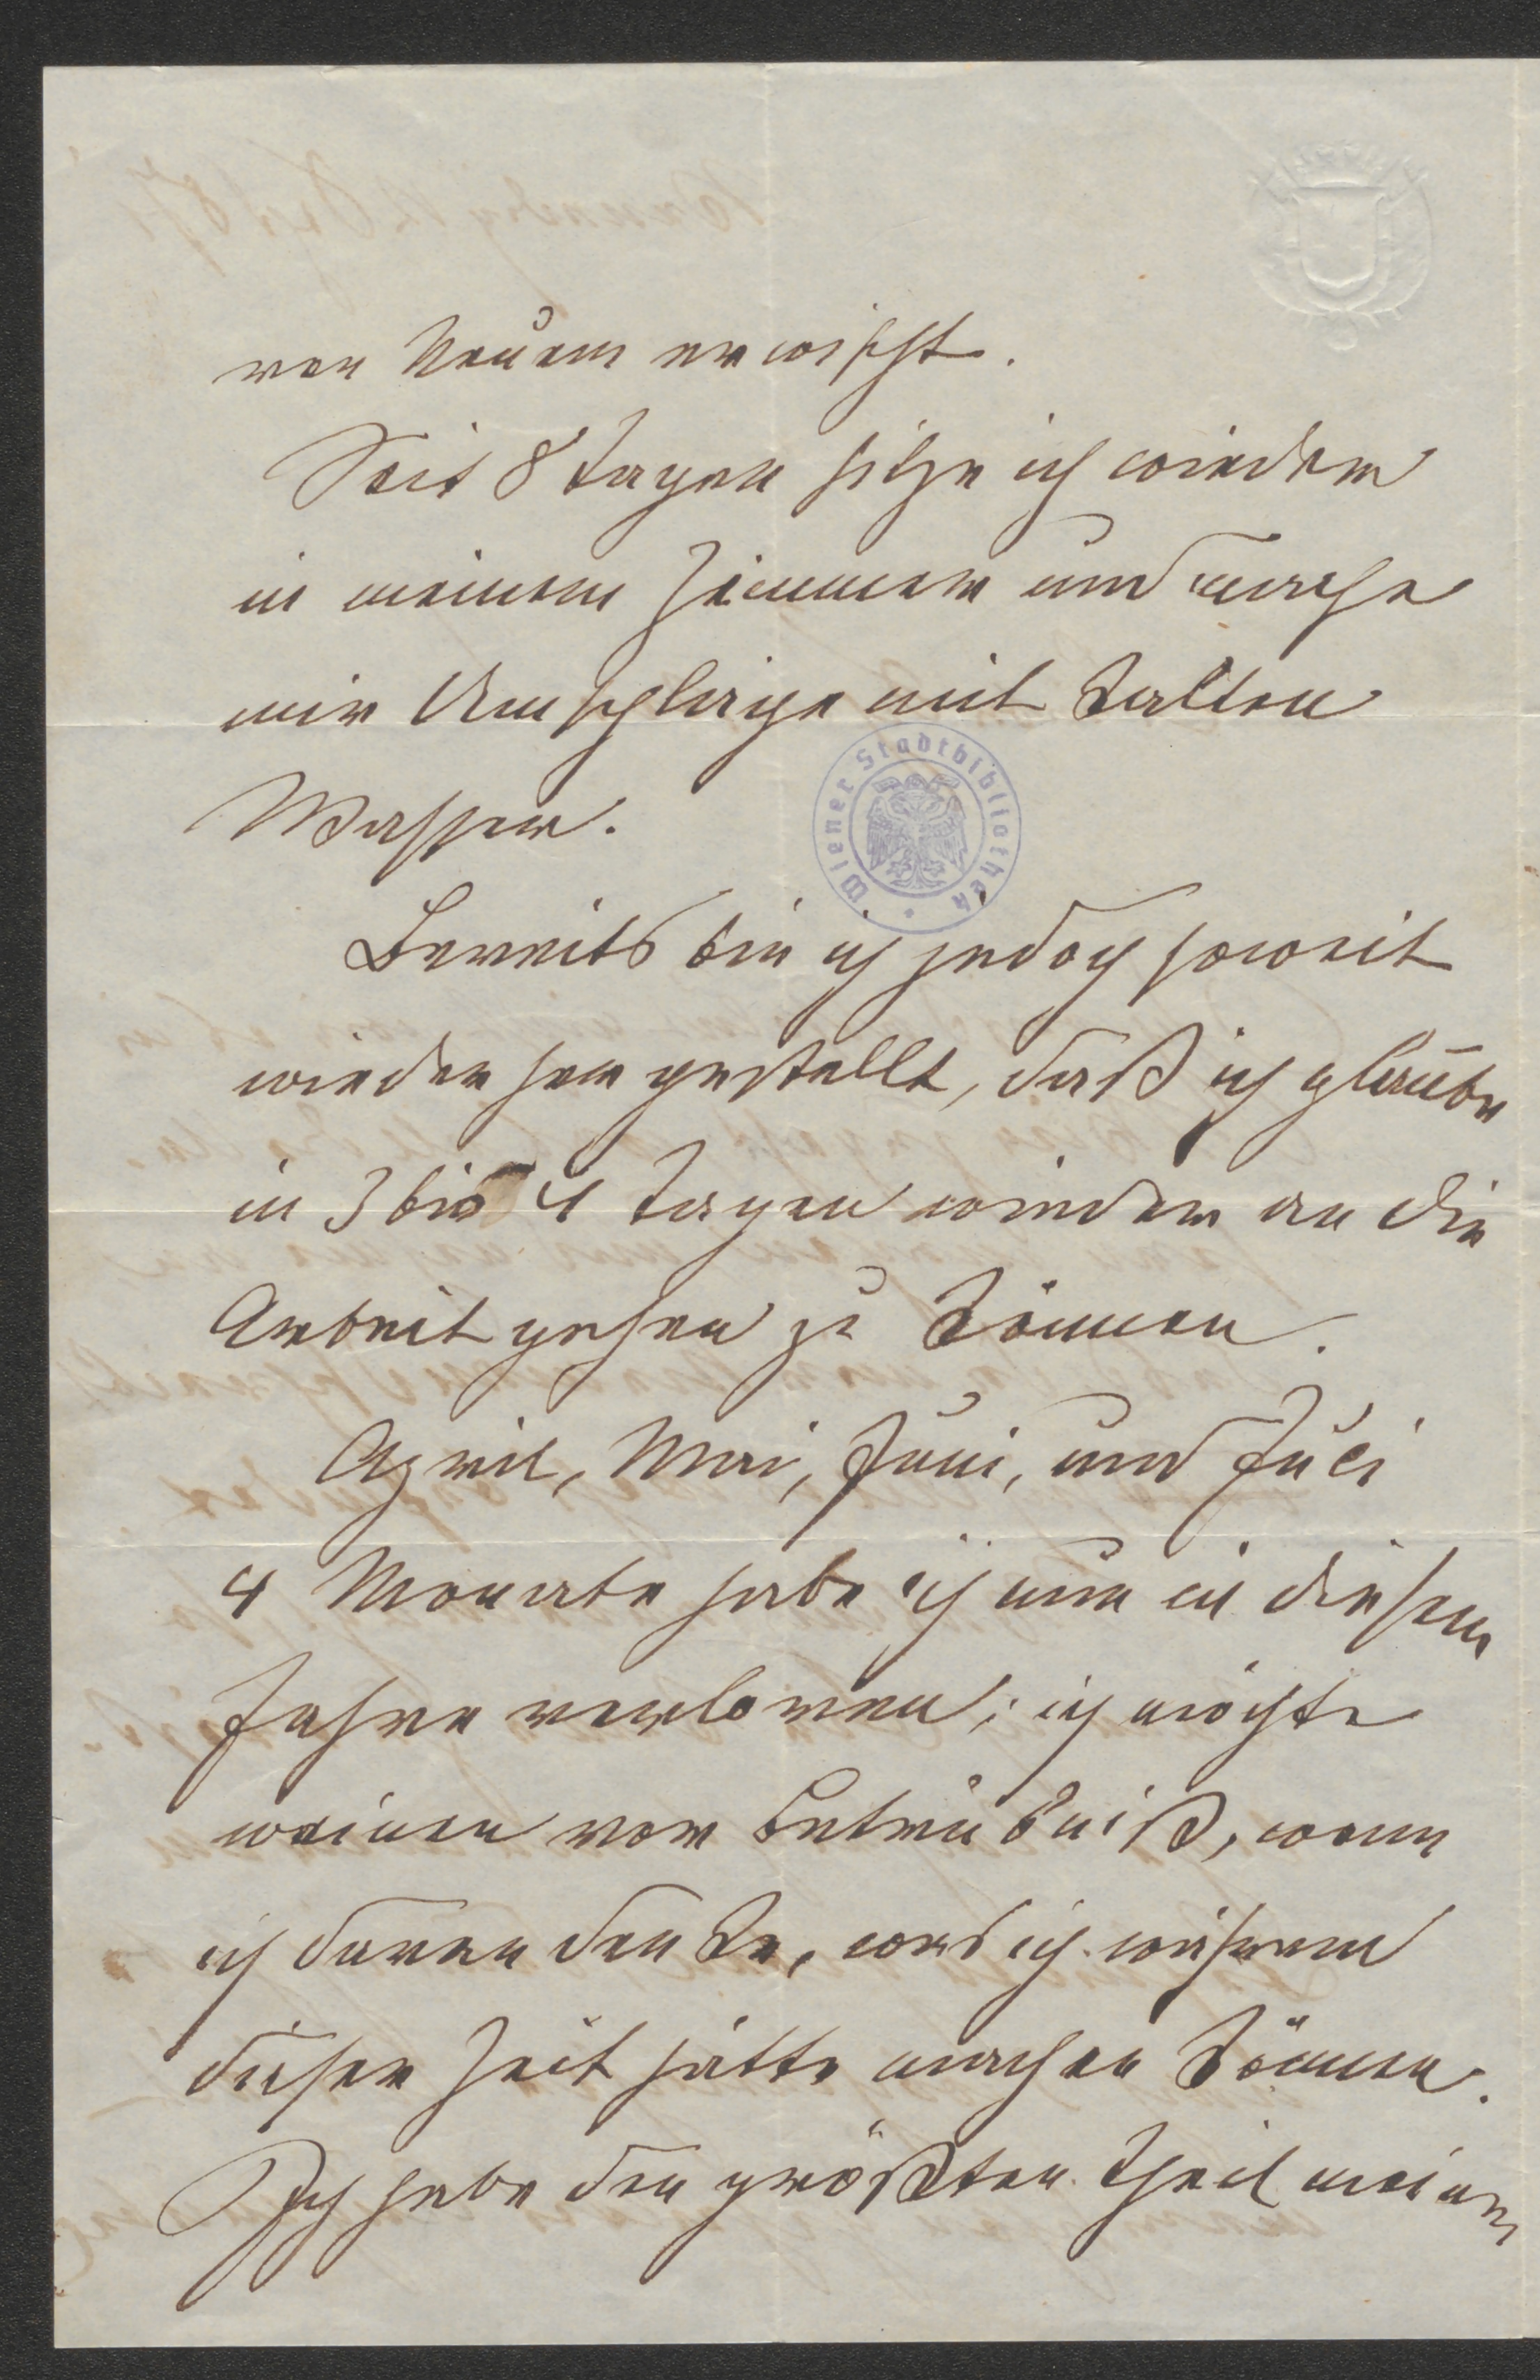 von Neuem erwischt.
Seit 8 Tagen sitze ich wieder
in meinem Zimmer und mache
mir Umschläge mit kalten
Wasser.
Wiener Stadtbibliothek
Bereits bin ich jedoch soweit
wieder hergestellt, daß ich glaube
in 3 bis 4 Tagen wieder an die
Arbeit gehen zu können.
April, Mai, Juni, und Juli
4 Monate habe ich nun in diesem
Jahre verloren; ich möchte
weinen vor Betrübniß, wenn
ich daran denke, was ich während
dieser Zeit hätte machen können.
Ich habe den größten Theil meiner